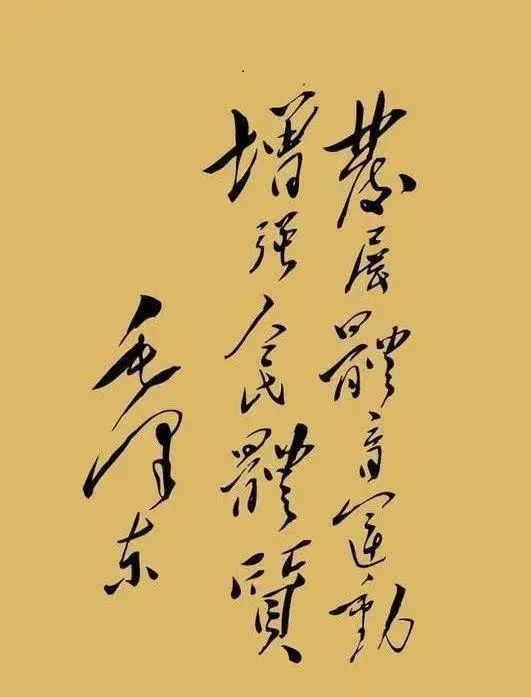 發展體育運動
增强人民體質
毛泽东